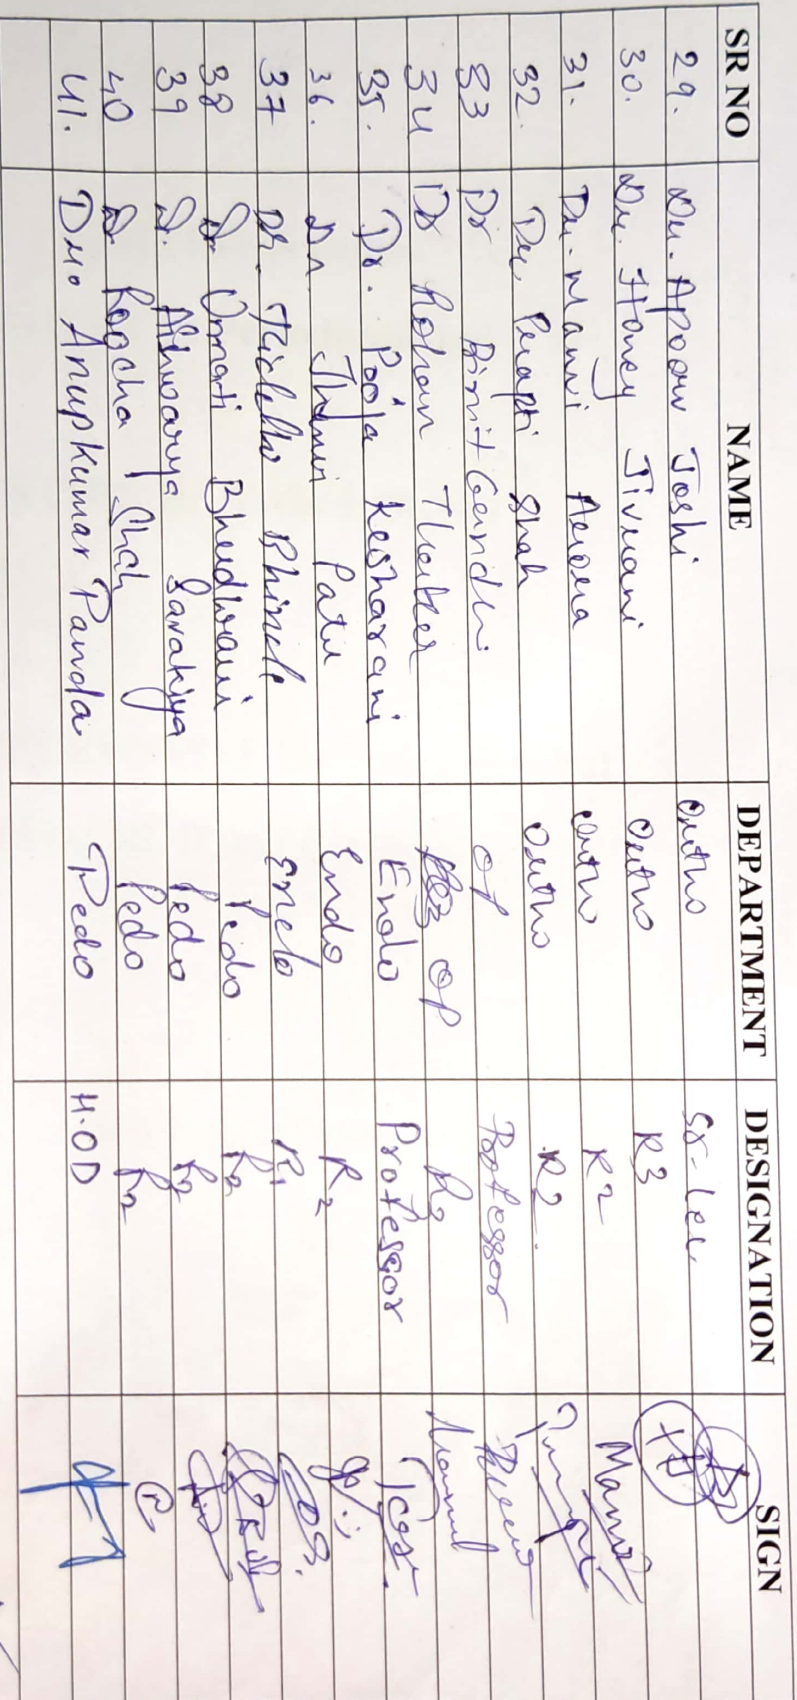 SR NO NAME DEPARTMENT DESIGNATION SIGN
29. Dr. Apoorv Joshi Ortho Sr-Lec
30. Dr. Honey Jivani Ortho R3
31. Dr. Manvi Arora Ortho R2
32. Dr. Prapti Shah Ortho R2
33 Dr Gandhi OP Professor
34 Dr Rohan Thakker OP R2
35. Dr. Pooja Kesharani Endo Professor
36. Dr. Patel Endo R2
37 Dr. Endo R1
38 Dr Unnati Bhudhrani Pedo R2
39 Dr. Aishwarya Savakiya Pedo R2
40 Dr Shah Pedo R2
41. Anupkumar Panda Pedo H.O.D